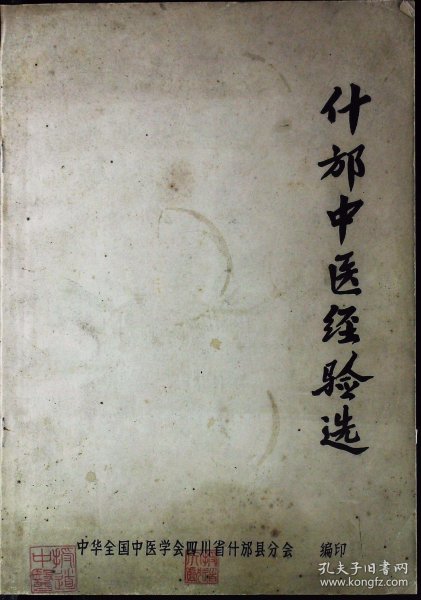 什邡中医经验选
中华全国中医学会四川省什邡县分会 编印
孔夫子旧书网
www.kongfz.com